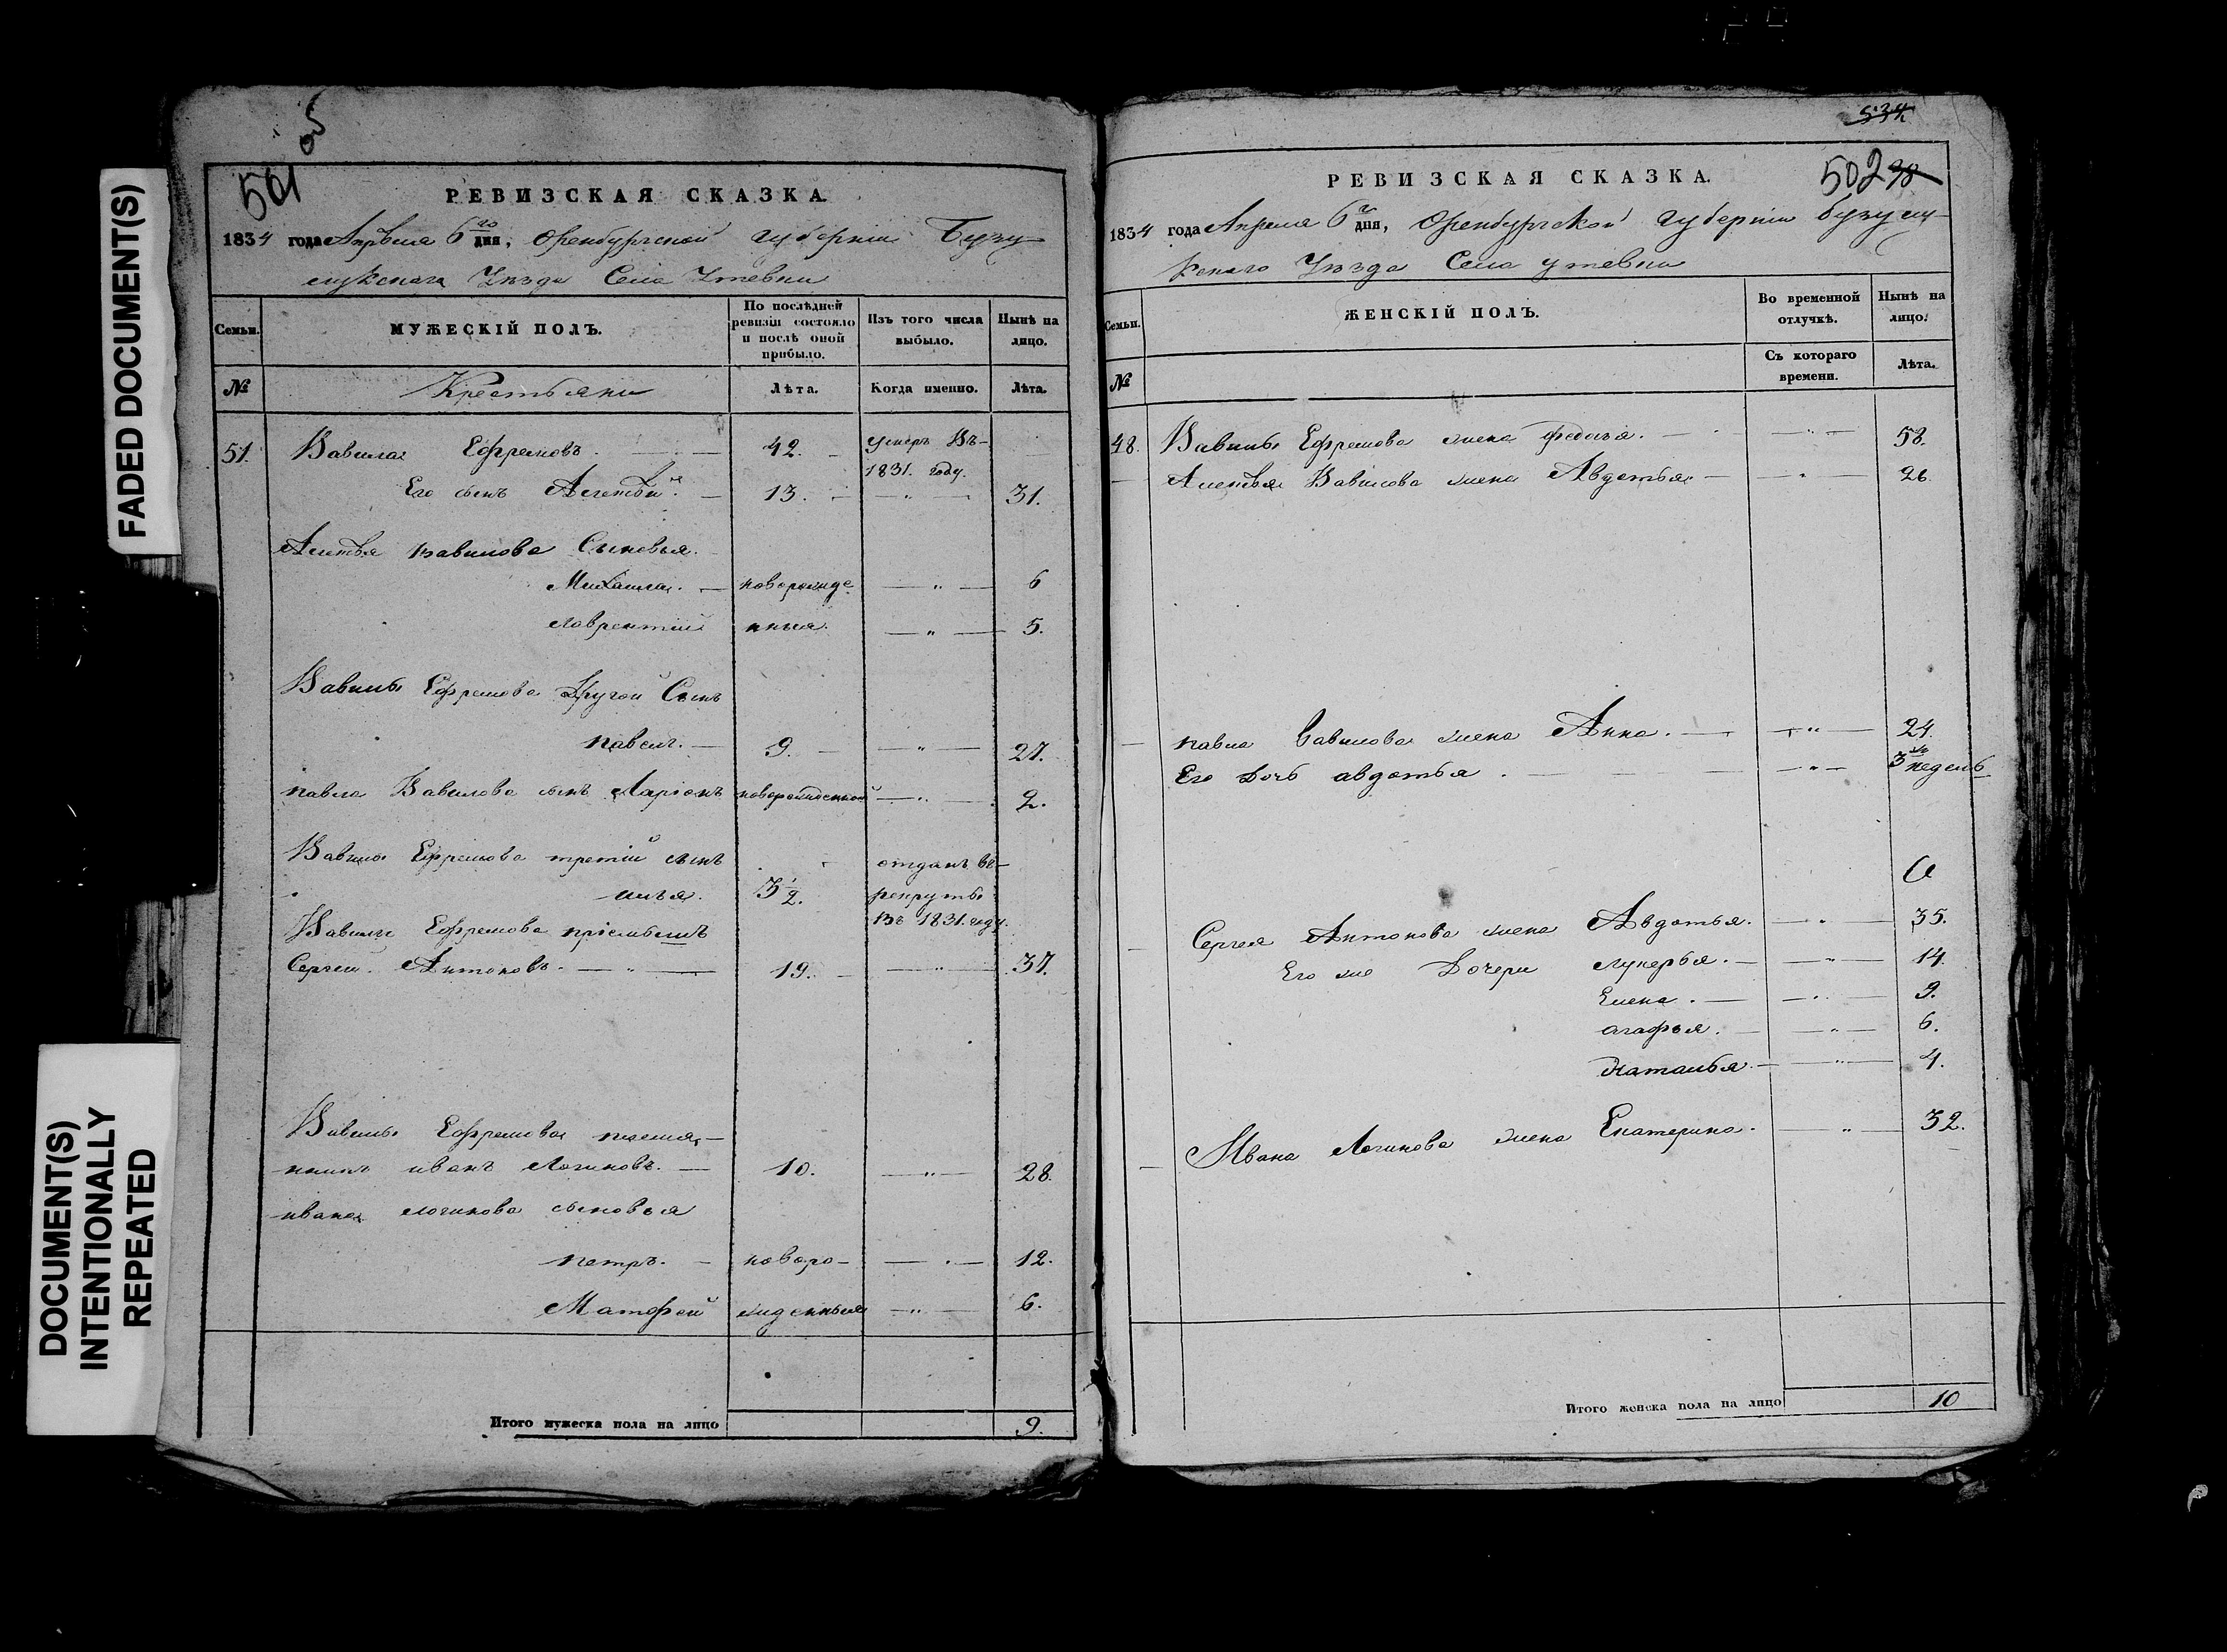 FADED DOCUMENT(S)
DOCUMENT(S)
INTENTIONALLY
REPEATED
об
501
РЕВИЗСКАЯ СКАЗКА.
1834 года Апреля 6го дня, Оренбургской губерніи Бузу
лукскаго Уѣзда Села Утевки
Семьи.
МУЖЕСКІЙ ПОЛЪ.
По послѣдней
ревизіи состояло
и послѣ оной
прибыло.
Изъ того числа
выбыло.
Нынѣ на
лицо.
№
Крестьяни
Лѣта.
Когда именно.
Лѣта.
51. Вавила Ефремовъ. 42. умеръ Въ
1831. году.
Его сынъ 13. — „ — 31.
Вавилова Сыновья.
Михаила. — новорожде — „ — 6
Лаврентий нныя. — „ — 5.
Вавилы Ефремова Другой Сынъ
павелъ. — 9. — „ — 27.
павла Вавилова сынъ Ларіонъ новорожденной — „ — 2.
Вавилы Ефремова третій сынъ отданъ въ
илья. 3 1/2. рекруты
Въ 1831. году.
Вавилы Ефремова пріемышъ
Сергей Антоновъ. — „ — 19. — „ — 37.
Вавилы Ефремова племя-
никъ иванъ Логиновъ. — 10. — „ — 28.
ивана логинова сыновья
петръ. — новоро- — „ — 12.
Матфей жденныя — „ — 6.
Итого мужеска пола на лицо 9.
534
502 98
РЕВИЗСКАЯ СКАЗКА.
1834 года Апреля 6го дня, Оренбургской губерніи бузулу-
кскаго Уѣзда Села утевки
Семьи.
ЖЕНСКІЙ ПОЛЪ.
Во временной
отлучкѣ.
Нынѣ на
лицо.
№
Съ котораго
времени.
Лѣта.
48. Вавилы Ефремова жена — „ — 58.
Вавилова жена Авдотья — „ — 26.
павла Вавилова жена Анна. — „ — 24.
Его дочь авдотья. — „ — 3 недель
Сергея Антонова жена Авдотья. — „ — 35.
Его же Дочери лукерья. — „ — 14.
Елена. — „ — 9.
агафья. — „ — 6.
Наталья — „ — 4.
Ивана Логинова жена Екатерина. — „ — 32.
Итого женска пола на лицо 10